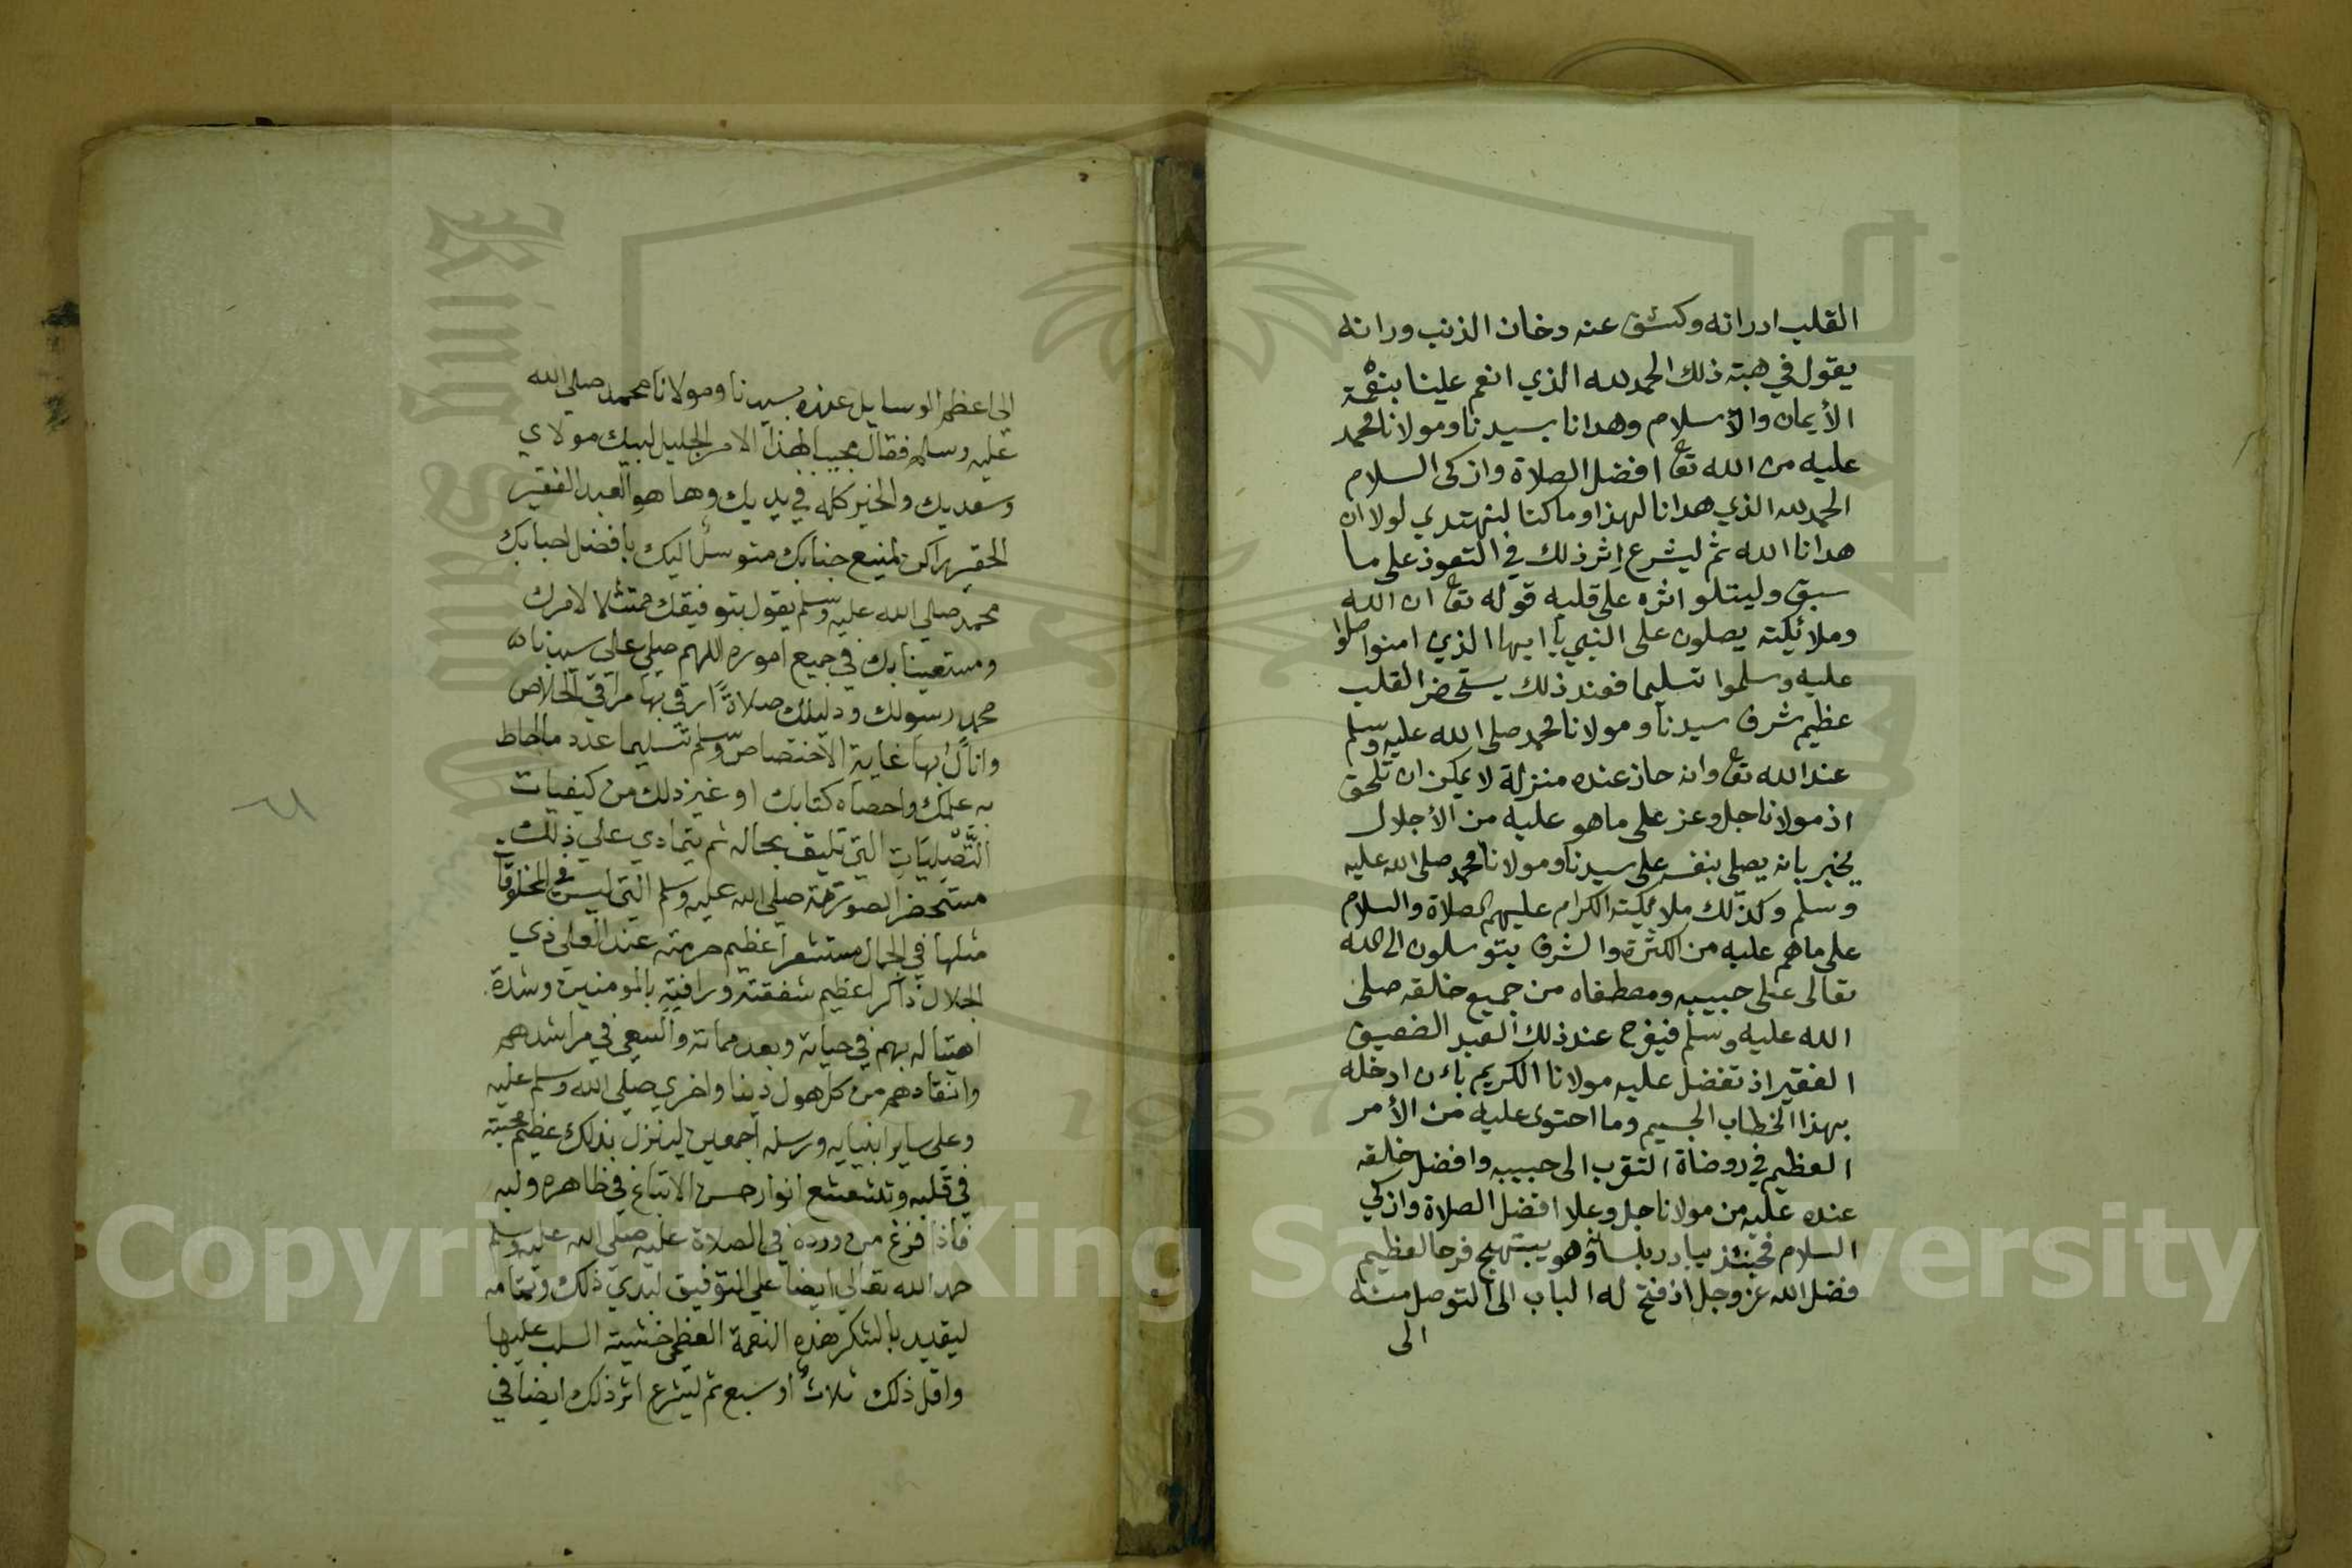 القلب ادرانه وكشف عنه دخان الذنب ورانه
يقول في هبته ذلك الحمد لله الذي انعم علينا بنعمة
الأيمان والاسلام وهدانا بسيدنا ومولانا محمد
عليه من الله تعا افضل الصلاة وازكى السلام
الحمد لله الذي هدانا لهذا وما كنا لنهتدي لولا ان
هدانا الله ثم ليشرع اثر ذلك في التعوذ على ما
سبق وليتلو اثره على قلبه قوله تعا ان الله
وملائكته يصلون على النبي يا ايها الذي امنوا صلوا
عليه وسلموا تسليما فعند ذلك يستحضر القلب
عظيم شرف سيدنا ومولانا محمد صلى الله عليه وسلم
عند الله تعا وانه حاز عنده منزلة لا يمكن ان تلحق
اذ مولانا جل وعز على ما هو عليه من الأجلال
يخبر بانه يصلي بنفسه على سيدنا ومولانا محمد صلى الله عليه
وسلم وكذلك ملائكته الكرام عليهم الصلاة والسلام
على ماهم عليه من الكثرة والشرف يتوسلون الى الله
تعالى على حبيبه ومصطفاه من جميع خلقه صلى
الله عليه وسلم فيفرح عند ذلك العبد الضعيف
الفقير اذ تفضل عليه مولانا الكريم بان ادخله
بهذا الخطاب الجسيم وما احتوى عليه من الأمر
العظيم في روضاة التقرب الى حبيبه وافضل خلقه
عنده عليه من مولانا جل وعلا افضل الصلاة وازكي
السلام فحينئذ يبادر بلسانه وهو يبتهج فرحا لعظيم
فضل الله عز وجل اذ فتح له الباب الى التوصل منه
الى
الى اعظم الوسايل عنده سيدنا ومولانا محمد صلى الله
عليه وسلم فقال مجيبا لهذا الامر الجليل لبيك مولاي
وسعديك والخير كله في يديك وها هو العبد الفقير
الحقير راكن لمنيع جنابك متوسل اليك بافضل احبابك
محمد صلى الله عليه وسلم يقول بتوفيقك ممتثلا لامرك
ومستعينا بك في جميع اموره اللهم صلي على سيدنا
محمد رسولك ودليلك صلاةً ارقى بها مراقي الخلاص
وانال بها غاية الاختصاص وسلم تسليما عدد ما احاط
به علمك واحصاه كتابك او غير ذلك من كيفيات
التَّصْلِيَاتِ التي تليق بحاله ثم يتمادي على ذلك
مستحضرا لصورته صلى الله عليه وسلم التي ليس في المخلوقات
مثلها في الجمال مستشعرا عظيم حرمته عند العلى ذي
الجلال ذاكرا عظيم شفقته ورافته بالمومنين وشدة
اهتباله بهم في حياته وبعد مماته والسعي في مراشدهم
وانقادهم من كل هول دنيا واخرى صلى الله وسلم عليه
وعلى ساير انبيايه ورسله اجمعين لينزل بذلك عظيم محبته
في قلبه وتتشعشع انوار حسن الاتباع في ظاهره ولبه
فاذا فرغ من ورده في الصلاة عليه صلى الله عليه وسلم
حمد الله تعالى ايضا على التوفيق لبدي ذلك وتمامه
ليقيد بالشكر هذه النعمة العظمى خشية السلب عليها
واقل ذلك ثلاث او سبع ثم ليشرع اثر ذلك ايضا في
Copyright © King Saud University
King Saud
1957